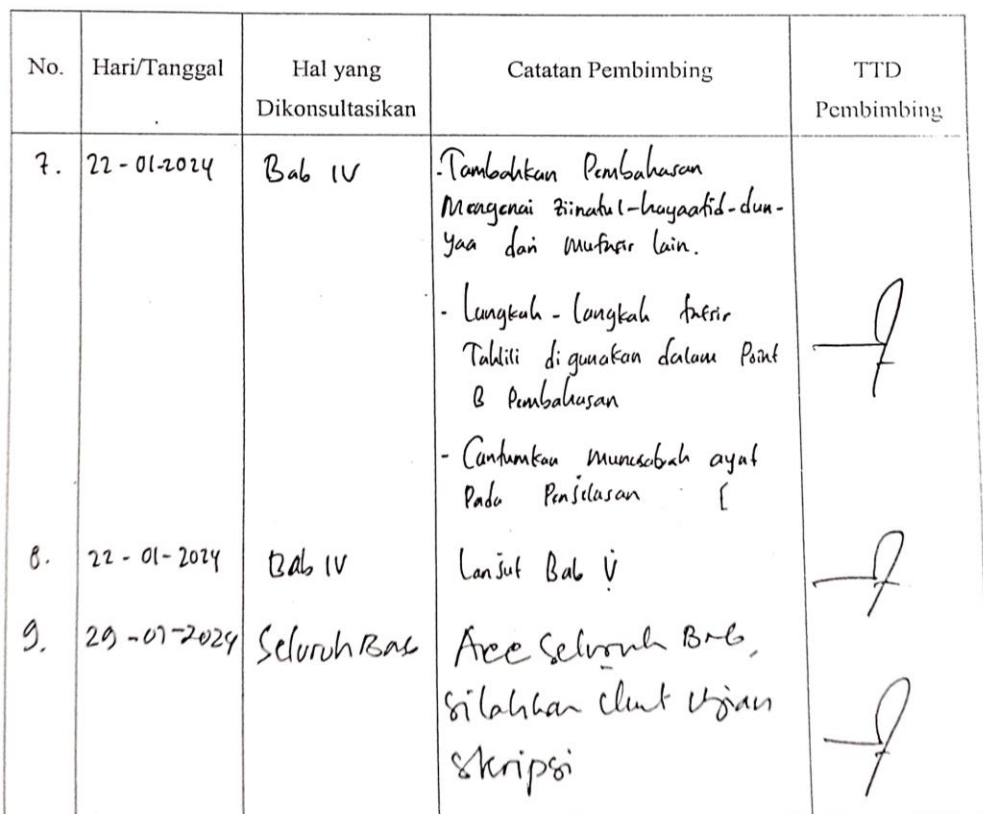 No. Hari/Tanggal Hal yang Dikonsultasikan Catatan Pembimbing TTD Pembimbing
7. 22-01-2024 Bab IV - Tambahkan Pembahasan
Mengenai ziinatul-hayaatid-dun-
yaa dari mufasir lain.
- Langkah-langkah tafsir
Tahlili digunakan dalam Point
B Pembahasan
- Cantumkan munasabah ayat
Pada Penjelasan
8. 22-01-2024 Bab IV Lanjut Bab V
9. 29-01-2024 Seluruh Bab Acc Seluruh Bab,
silahkan Ujian
skripsi